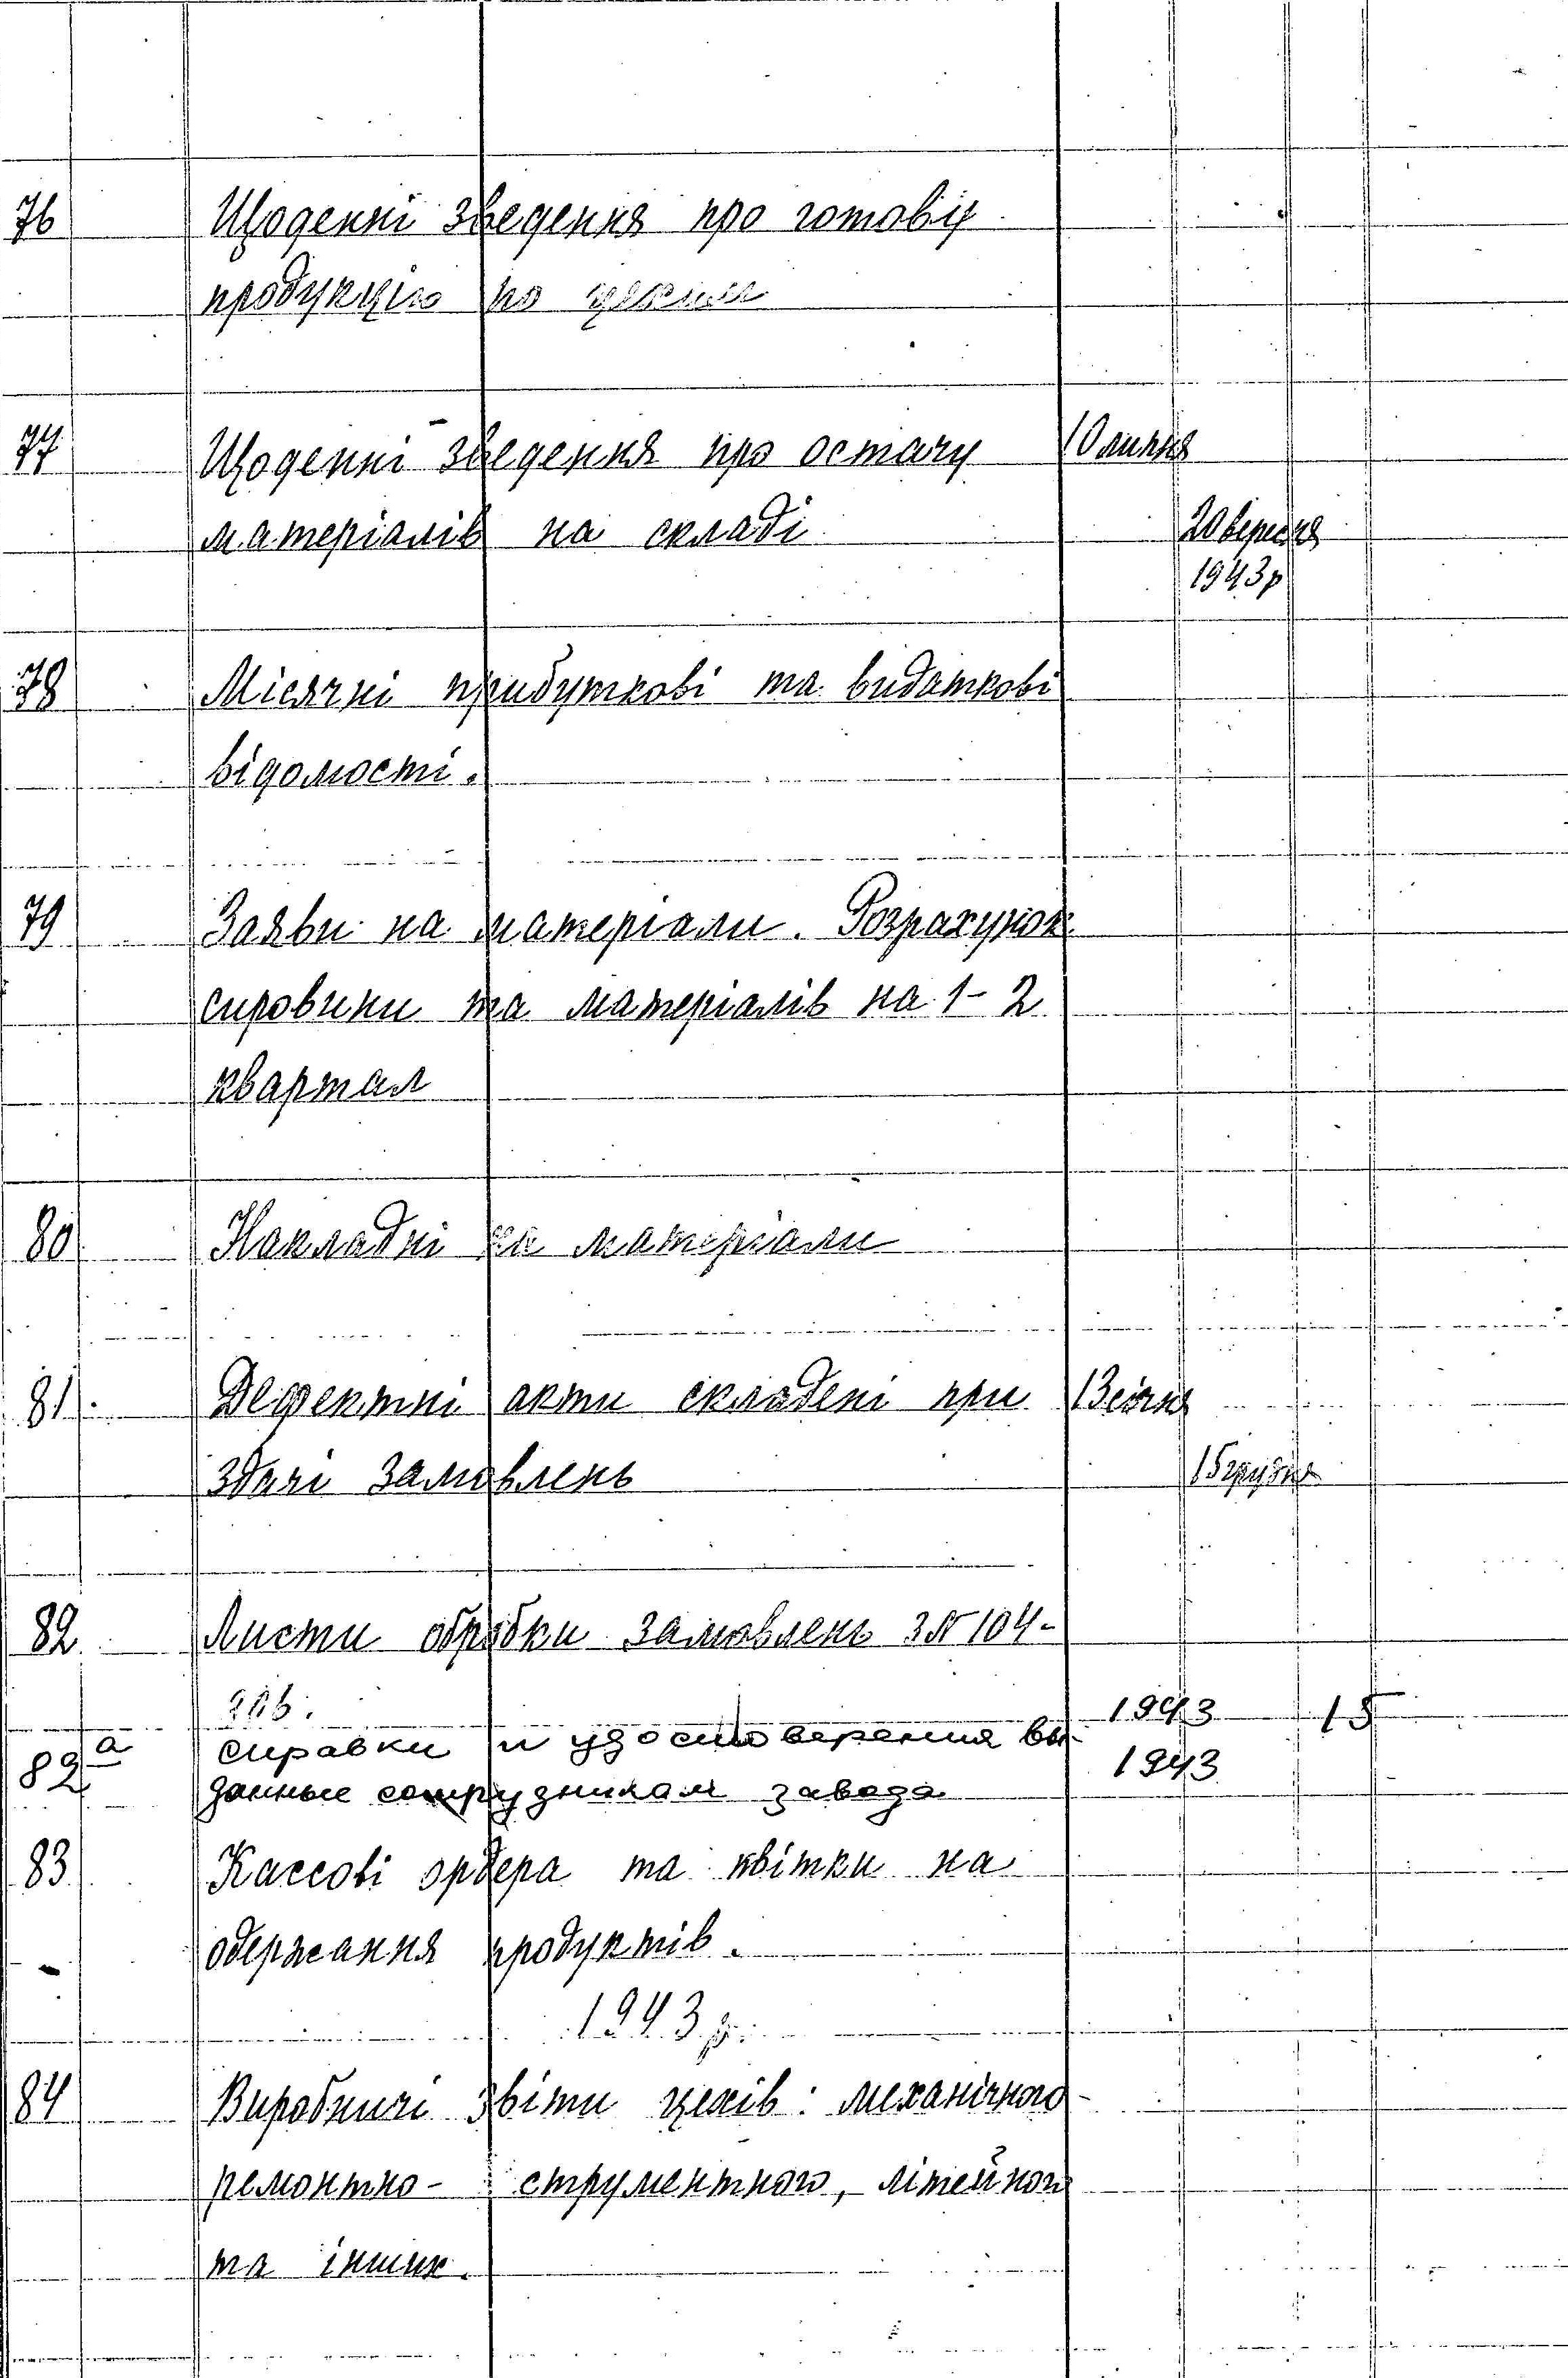 76 Щоденні зведення про готову
продукцію по цехам
77 Щоденні зведення про остачу 10 липня
матеріалів на складі 20 вересня
1943р
78 Місячні прибуткові та видаткові
відомості.
79 Заяви на матеріали. Розрахунок
сировини та матеріалів на 1-2
квартал
80 Накладні на матеріали
81 Дефектні акти складені при 13 січня
здачі замовлень 15 грудня
82 Листи обробки замовлень з № 104-
1943 15
82а справки и удостоверения вы-
1943
данные сотрудникам завода
83 Кассові ордера та квітки на
одержання продуктів.
1943 р.
84 Виробничі звіти цехів: механічного
ремонтно- струментного, літейного
та інших.